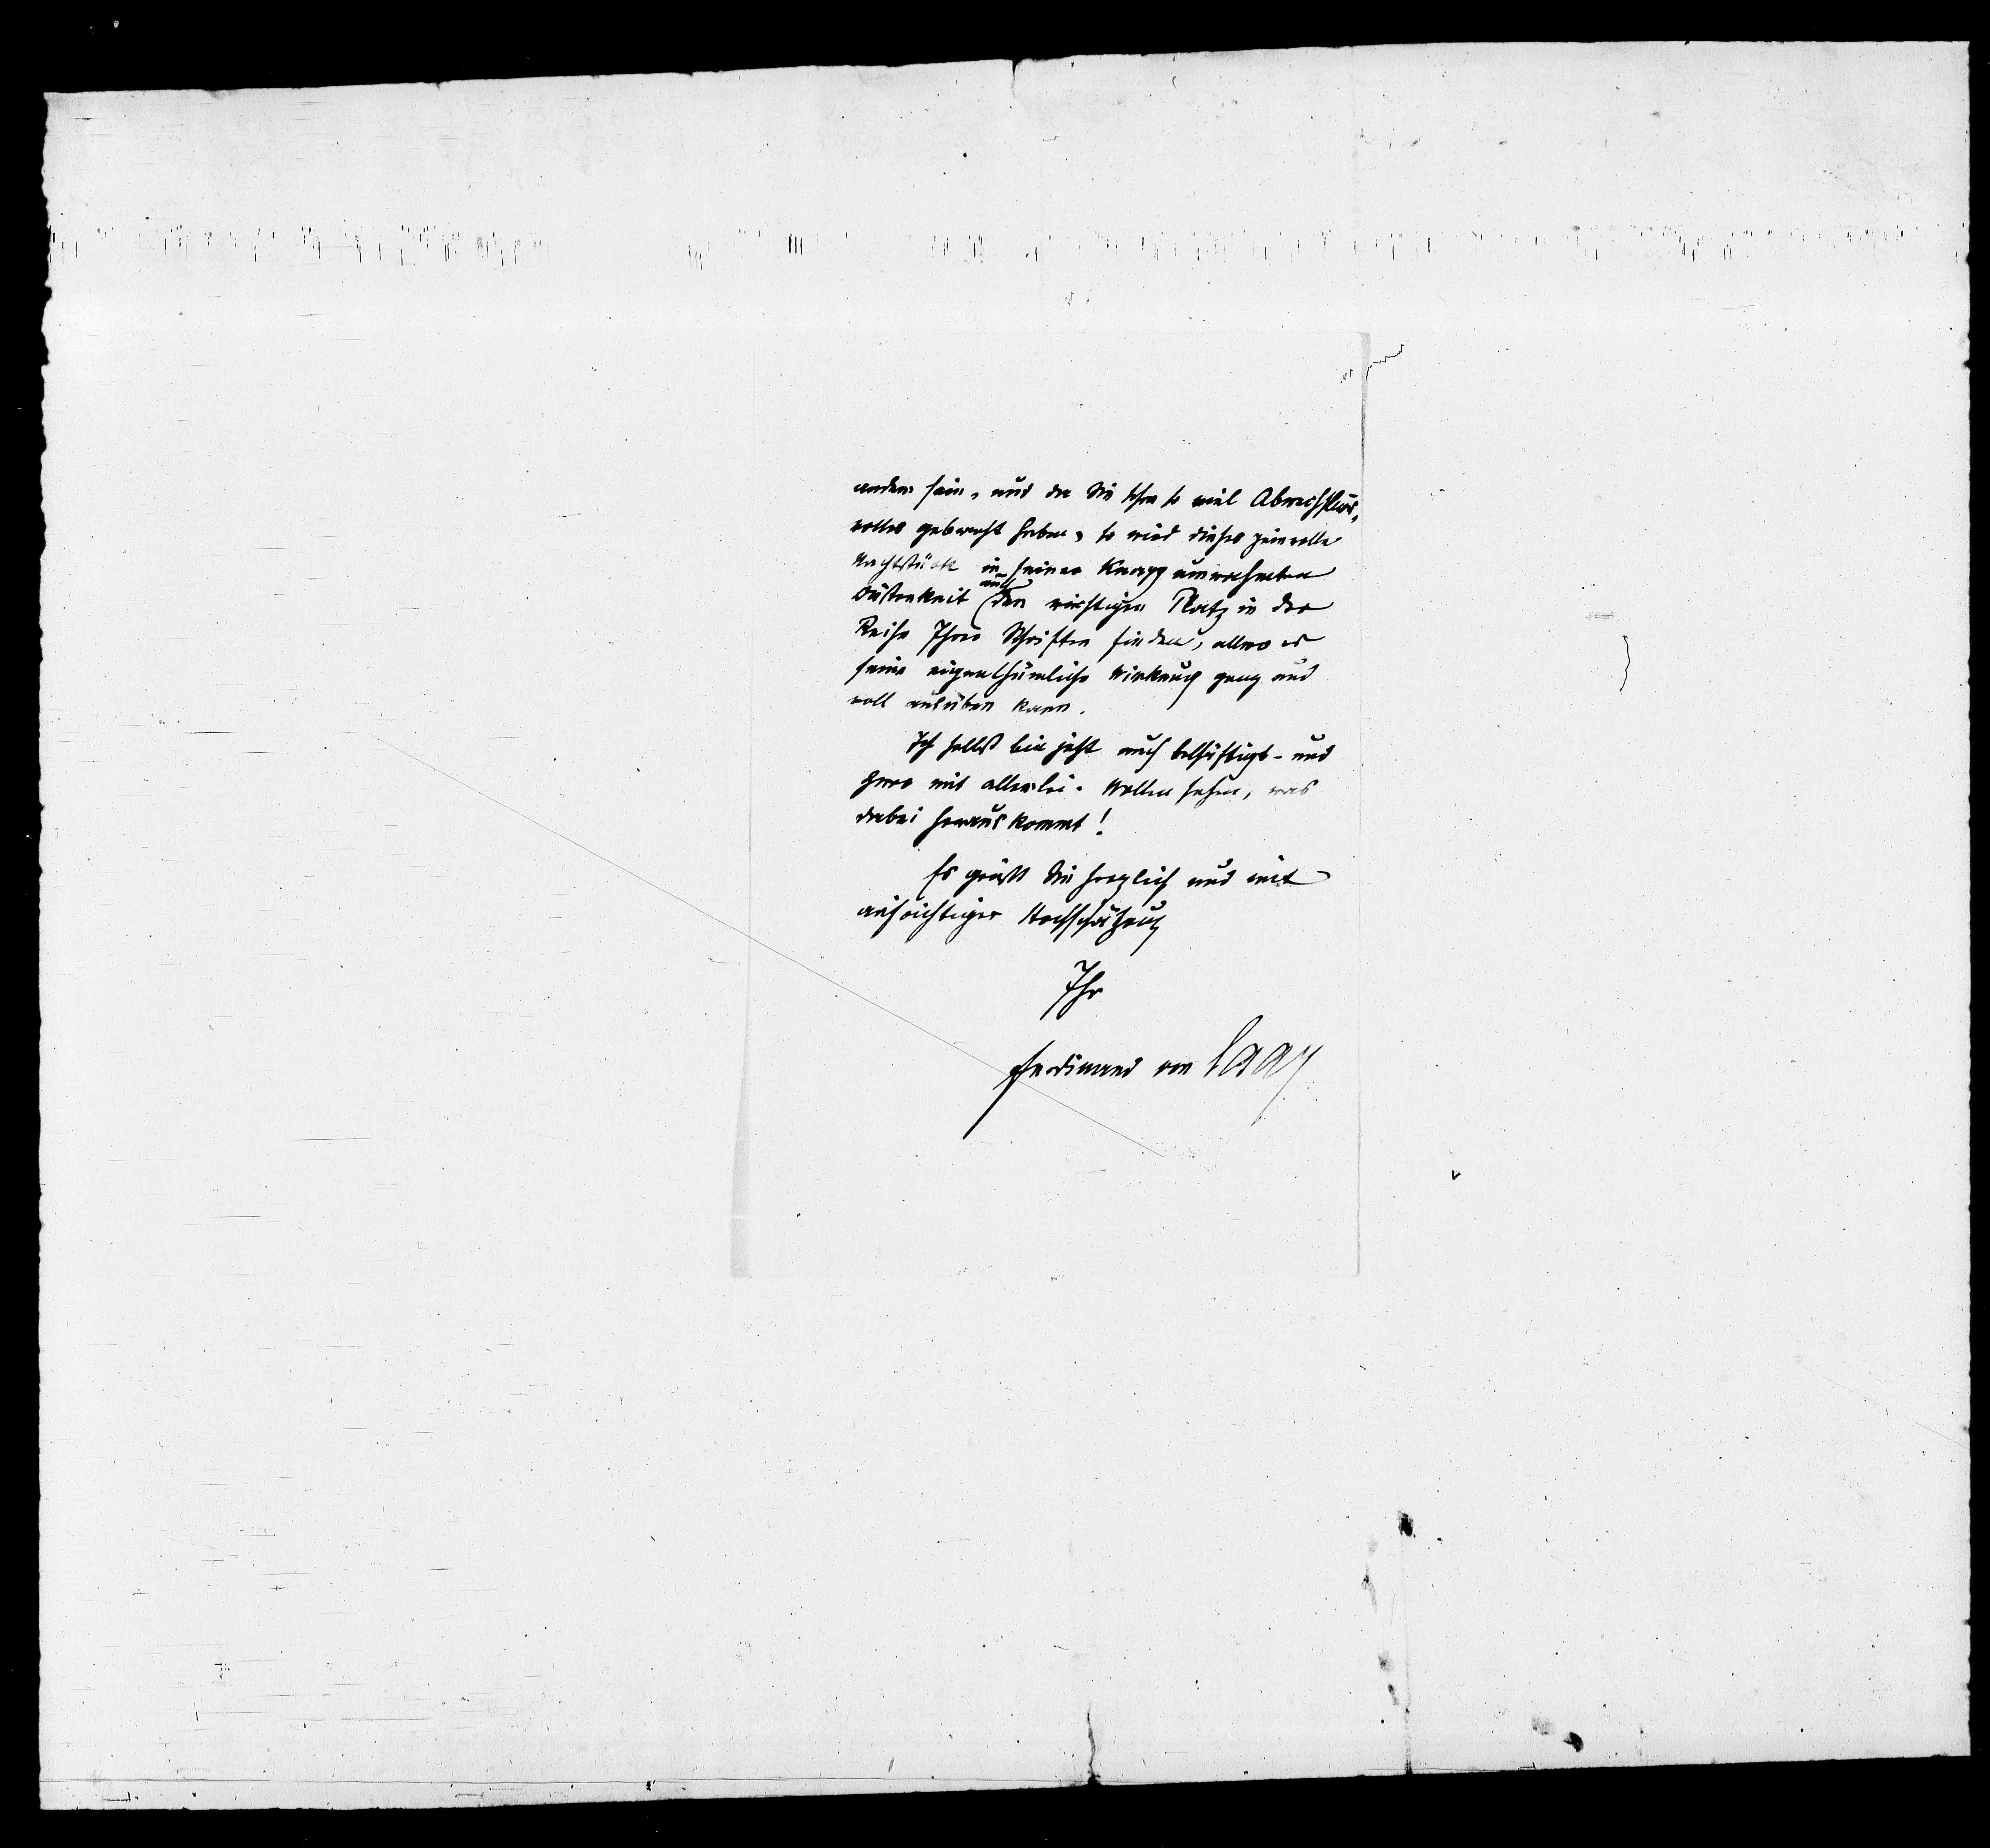 anders sein, und da Sie schon so viel Abwechslungs-
volles gebracht haben, so wird dieses peinvolle
Nachtstück in seiner knapp umrahmten
Düsterkeit auch den richtigen Platz in der
Reihe Ihrer Schriften finden, allwo es
seine eigenthümliche Wirkung ganz und
voll ausüben kann.
Ich selbst bin jetzt auch beschäftigt - und
zwar mit allerlei. Wollen sehen, was
dabei herauskommt!
Es grüßt Sie herzlich und mit
aufrichtiger Hochschätzung
Ihr
Ferdinand von Saar